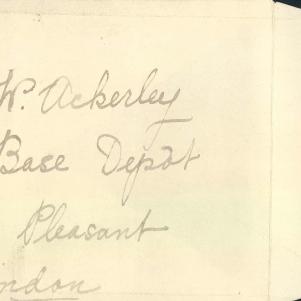 W. Ackerley
Base Depôt
Pleasant
ndon